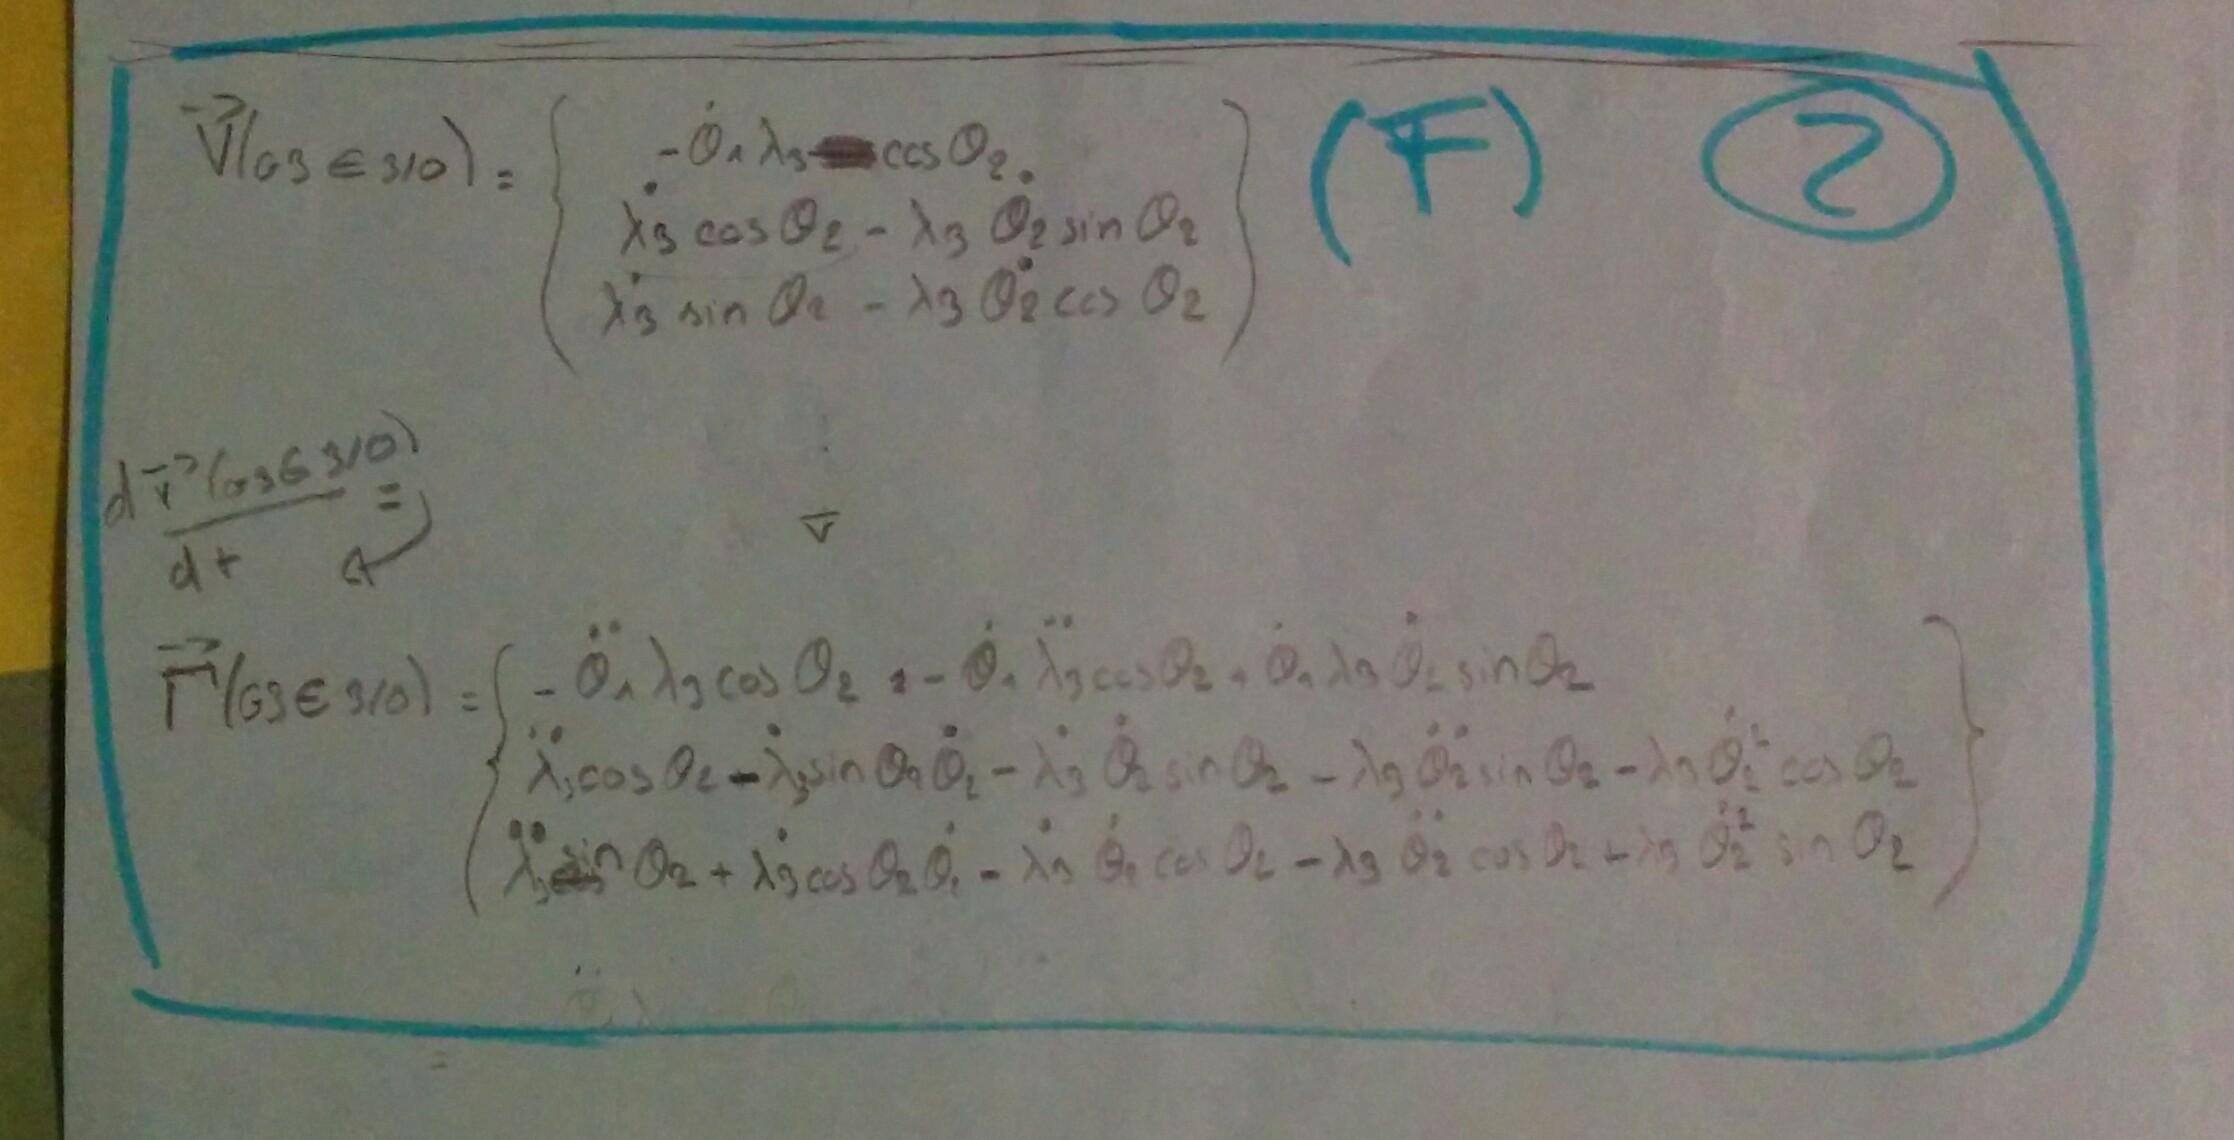 V⃗(G3 ∈ 3/0) = { -θ̇₁ λ₃ cos θ₂ (F) 2
λ̇₃ cos θ₂ - λ₃ θ̇₂ sin θ₂
λ̇₃ sin θ₂ - λ₃ θ̇₂ cos θ₂ }
dV⃗(G3 ∈ 3/0) =
dt
Γ⃗(G3 ∈ 3/0) = { - θ̈₁ λ₃ cos θ₂ - θ̇₁ λ̈₃ cos θ₂ + θ̇₁ λ₃ θ̇₂ sin θ₂
λ̈₃ cos θ₂ - λ̇₃ sin θ₂ θ̇₂ - λ̇₃ θ̇₂ sin θ₂ - λ₃ θ̈₂ sin θ₂ - λ₃ θ̇₂² cos θ₂
λ̈₃ sin θ₂ + λ̇₃ cos θ₂ θ̇₂ - λ̇₃ θ̇₂ cos θ₂ - λ₃ θ̈₂ cos θ₂ + λ₃ θ̇₂² sin θ₂ }